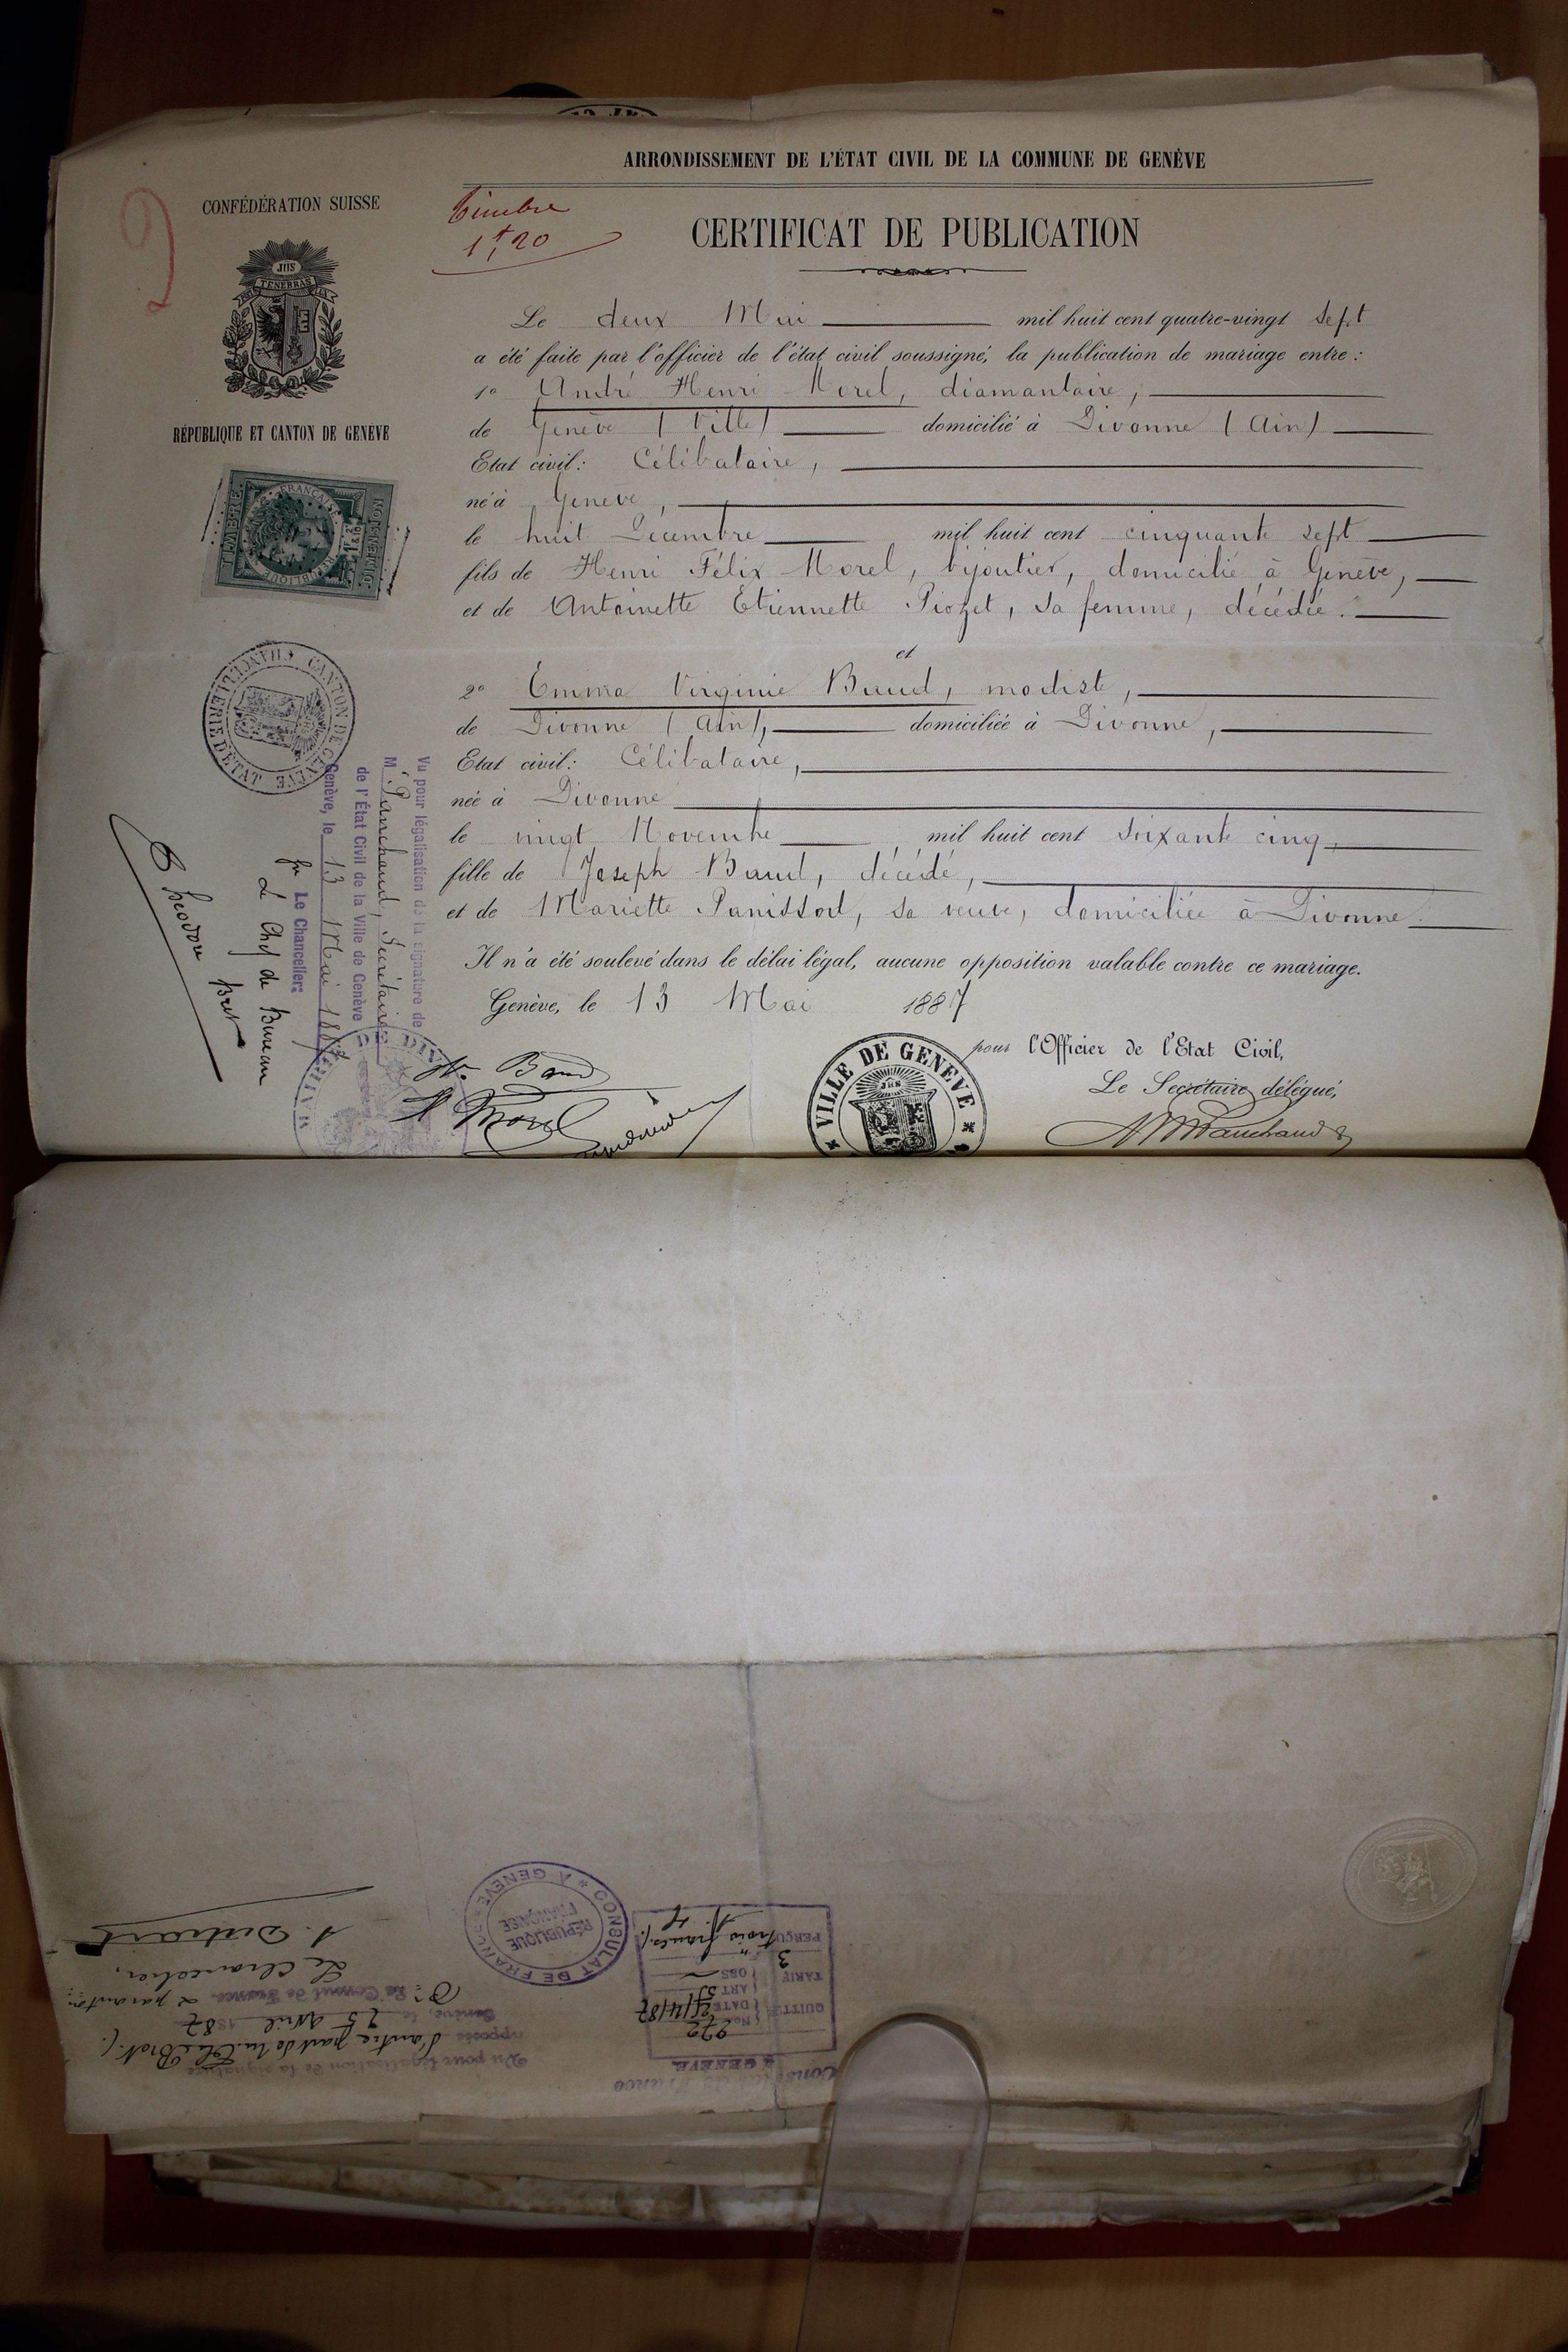 ARRONDISSEMENT DE L'ÉTAT CIVIL DE LA COMMUNE DE GENÈVE
CONFÉDÉRATION SUISSE
Timbre
1f,20
CERTIFICAT DE PUBLICATION
JHS
TENEBRAS
RÉPUBLIQUE ET CANTON DE GENÈVE
Le deux Mai mil huit cent quatre-vingt sept
a été faite par l'officier de l'état civil soussigné, la publication de mariage entre :
1º André Henri Morel, diamantaire,
de Genève (Ville) domicilié à Divonne (Ain)
Etat civil: Célibataire,
né à Genève,
le huit Décembre mil huit cent cinquante sept
fils de Henri Félix Morel, bijoutier, domicilié à Genève,
et de Antoinette Etiennette Piozet, sa femme, décédée.
et
2º Emma Virginie Baud, modiste,
de Divonne (Ain), domiciliée à Divonne,
Etat civil: Célibataire,
née à Divonne
le vingt Novembre mil huit cent soixante cinq,
fille de Joseph Baud, décédé,
et de Mariette Panissod, sa veuve, domiciliée à Divonne.
Il n'a été soulevé dans le délai légal, aucune opposition valable contre ce mariage.
Genève, le 13 Mai 1887
pour l'Officier de l'Etat Civil,
Le Secrétaire délégué,
Baud
Morel
VILLE DE GENEVE
JHS
CANTON DE GENÈVE CHANCELLERIE D'ETAT
Vu pour légalisation de la signature de
M r. Panchaud, Secrétaire
de l'État Civil de la Ville de Genève
Genève, le 13 Mai 1887
Le Chancelier:
Le Chef de Bureau
Théodore Bret
TIMBRE
FRANÇAISE
Consulat de France
à GENÈVE
QUITTCE
Nos 272
DATE 25/4/87
ART 51
OBS
TARIF 3
PERÇU trois francs
CONSULAT DE FRANCE * A GENEVE *
RÉPUBLIQUE
FRANÇAISE
Vu pour légalisation de la signature
apposée d'autre part de M. Th. Bret.
Genève, le 25 avril 1887
Le Consul de France
Le Chancelier,